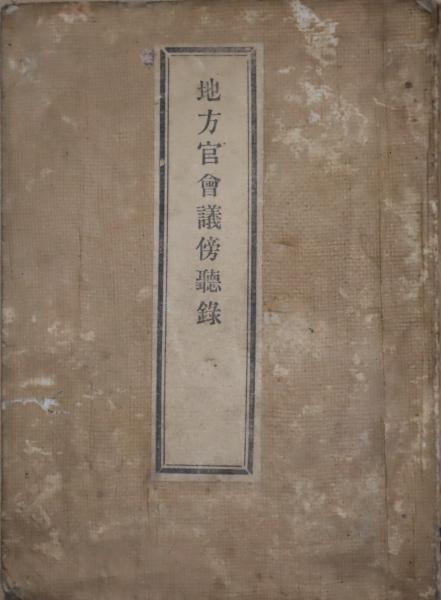 地方官會議傍聽錄